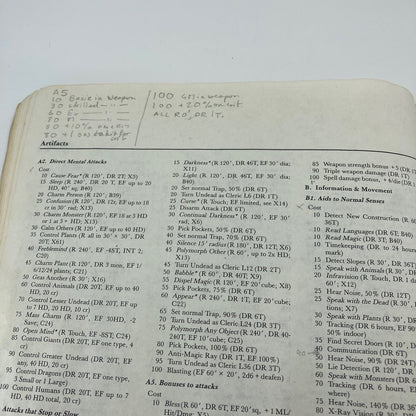 A5
10 Basic in weapon
30 skilled
60 Ex
80 M
100 GM in weapon
100 +20% on hit
ALL R0', DR 1T.
Artifacts
A2. Direct Mental Attacks
Cost
10 Cause Fear* (R 120', DR 2T; X3)
15 Sleep (R 240', DR 20 T, EF up to 20 HD, 40' sq, B40)
20 Charm Person (R 120')
25 Confusion (R 120', DR 12r, EF up to 18 cr in 30' rad; X13)
25 Charm Monster (R 120', EF 18 at 3 HD or 1 at 5 + HD; X13)
30 Calm Others (R 120', EF up to 40 HD)
35 Control Plants (R all in 30' × 30', DR 20T; X61)
40 Feeblemind (R 240', EF -8ST, INT 2; C20)
45 Charm Plant (R 120', DR 3 mon, EF 1/6/12/24 plants; C21)
50 Geas Another (R 30'; X16)
60 Control Animals (DR 20T, EF up to 40 HD, 20 cr)
70 Control Lesser Undead (DR 20T, EF up to 7 HD, 20 HD, 10 cr)
75 Mass Charm (R 120', EF 30HD, -2 Save; C24)
80 Open Mind* (R Touch, EF -8ST; C24)
85 Control Giants (DR 20T, EF one type, 40 HD, 20 cr)
90 Control Greater Undead (DR 20T, EF any, 40 HD, 20 cr)
95 Control Dragons (DR 20T, EF one type, 3 Small or 1 Large)
100 Control Humans (DR 20T, EF up to 7 HD, 40 HD total, 20 cr)
Attacks that Stop or Slow
15 Darkness* (R 120', DR 46T, EF 30' dia; X11)
20 Light (R 120', DR 46T, EF 30' dia; B40)
20 Set normal Trap, 50% (DR 6T)
20 Turn Undead as Cleric L6 (DR 1T)
25 Curse* (R Touch, EF limited, see X14)
25 Disarm Attack (DR 6T)
30 Continual Darkness* (R 120', EF 30' rad; X6)
30 Pick Pockets, 50% (DR 6T)
40 Set normal Trap, 70% (DR 6T)
40 Silence 15' radius (R 180', DR 12T; X6)
45 Polymorph Other (R 60', up to 2x HD; X13)
45 Turn Undead as Cleric L12 (DR 2T)
50 Babble* (R 60', DR 40T; X6)
55 Dispel Magic (R 120', EF 20' cube; X8)
55 Pick Pockets, 75% (DR 6T)
60 Appear* (R 240', DR 1T, EF 20' cube; C22)
65 Set normal Trap, 90% (DR 6T)
70 Turn Undead as Cleric L24 (DR 3T)
75 Polymorph Any Object (R 240', DR 40-240T, EF 10' cube; C25)
80 Pick Pockets, 100% (DR 6T)
90 Anti-Magic Ray (DR 1T, EF 100%)
95 Turn Undead as Cleric L36 (DR 3T)
100 Blasting (EF 60' × 20', 2d6 + deafen)
A5. Bonuses to attacks
Cost
10 Bless (R 60', DR 6T, EF 20' sq, +1 ML/
85 Weapon strength bonus +5 (DR
90 Triple weapon damage (DR
100 Spell damage bonus,
B. Information & Movement
B1. Aids to Normal Senses
Cost
10 Detect New Construction (R
10 Read Languages (DR 6T; B40)
10 Read Magic (DR 3T, B40)
10 Timekeeping (DR to 24 hours
15 Detect Slopes (R 30', DR 36T)
15 Speak with Animals (R 30', DR
20 Infravision (R Touch, DR 1
25 Hear Noise, 50% (DR 12T)
25 Speak with the Dead (R 30',
30 Speak with Plants (R 30', DR
30 Tracking (DR 6 turns, EF
40 Find Secret Doors (R 30', DR
40 Communication (DR 6T)
50 Hear Noise, 90% (DR 12T)
50 Lie Detection (R 120', DR
60 Speak with Monsters (DR
70 Tracking (DR 6 turns, EF
75 Hear Noise, 140% (DR